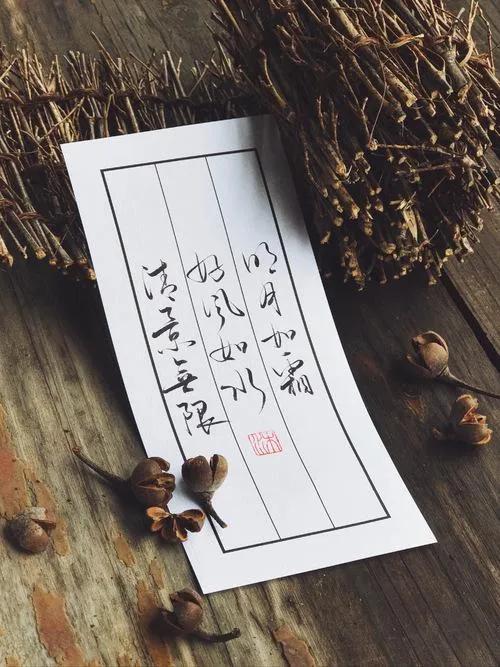 明月如霜
好風如水
清景無限